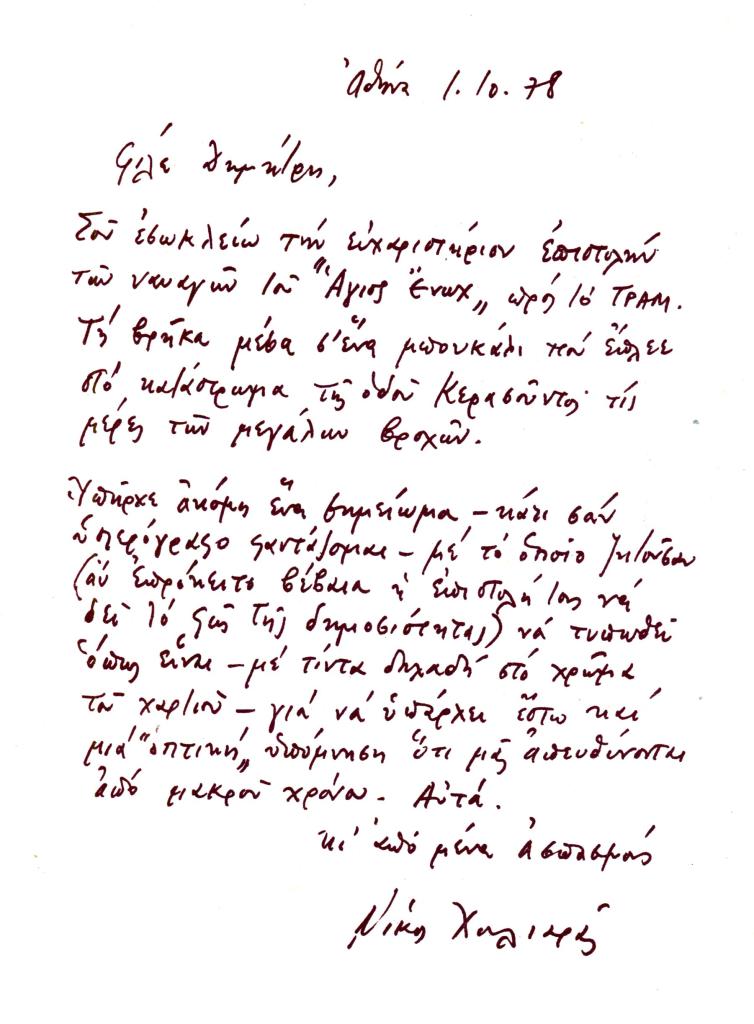 Ἀθήνα 1.10.78
Φίλε Δημήτρη,
Σοῦ ἐσωκλείω τήν εὐχαριστήριον ἐπιστολήν
τῶν ναυαγῶν τοῦ "Ἅγιος Ἐνώχ" πρός τό ΤΡΑΜ.
Τή βρῆκα μέσα σ' ἕνα μπουκάλι πού ἔπλεε
στό κατάστρωμα τῆς ὁδοῦ Κερασοῦντος τίς
μέρες τῶν μεγάλων βροχῶν.
Ὑπῆρχε ἀκόμη ἕνα σημείωμα – κάτι σάν
ὑστερόγραφο φαντάζομαι – μέ τό ὁποῖο ζητοῦσαν
(ἄν ἐπρόκειτο βέβαια ἡ ἐπιστολή τους νά
δεῖ τό φῶς τῆς δημοσιότητας) νά τυπωθεῖ
ὅπως εἶναι – μέ τίντα δηλαδή στό χρῶμα
τοῦ χαρτιοῦ – γιά νά ὑπάρχει ἔστω καί
μιά "ὀπτική" ὑπόμνηση ὅτι μᾶς ἀπευθύνονται
ἀπό μακροῦ χρόνου. Αὐτά.
κι' ἀπό μένα ἀσπασμούς
Νίκος Χουλιαρᾶς